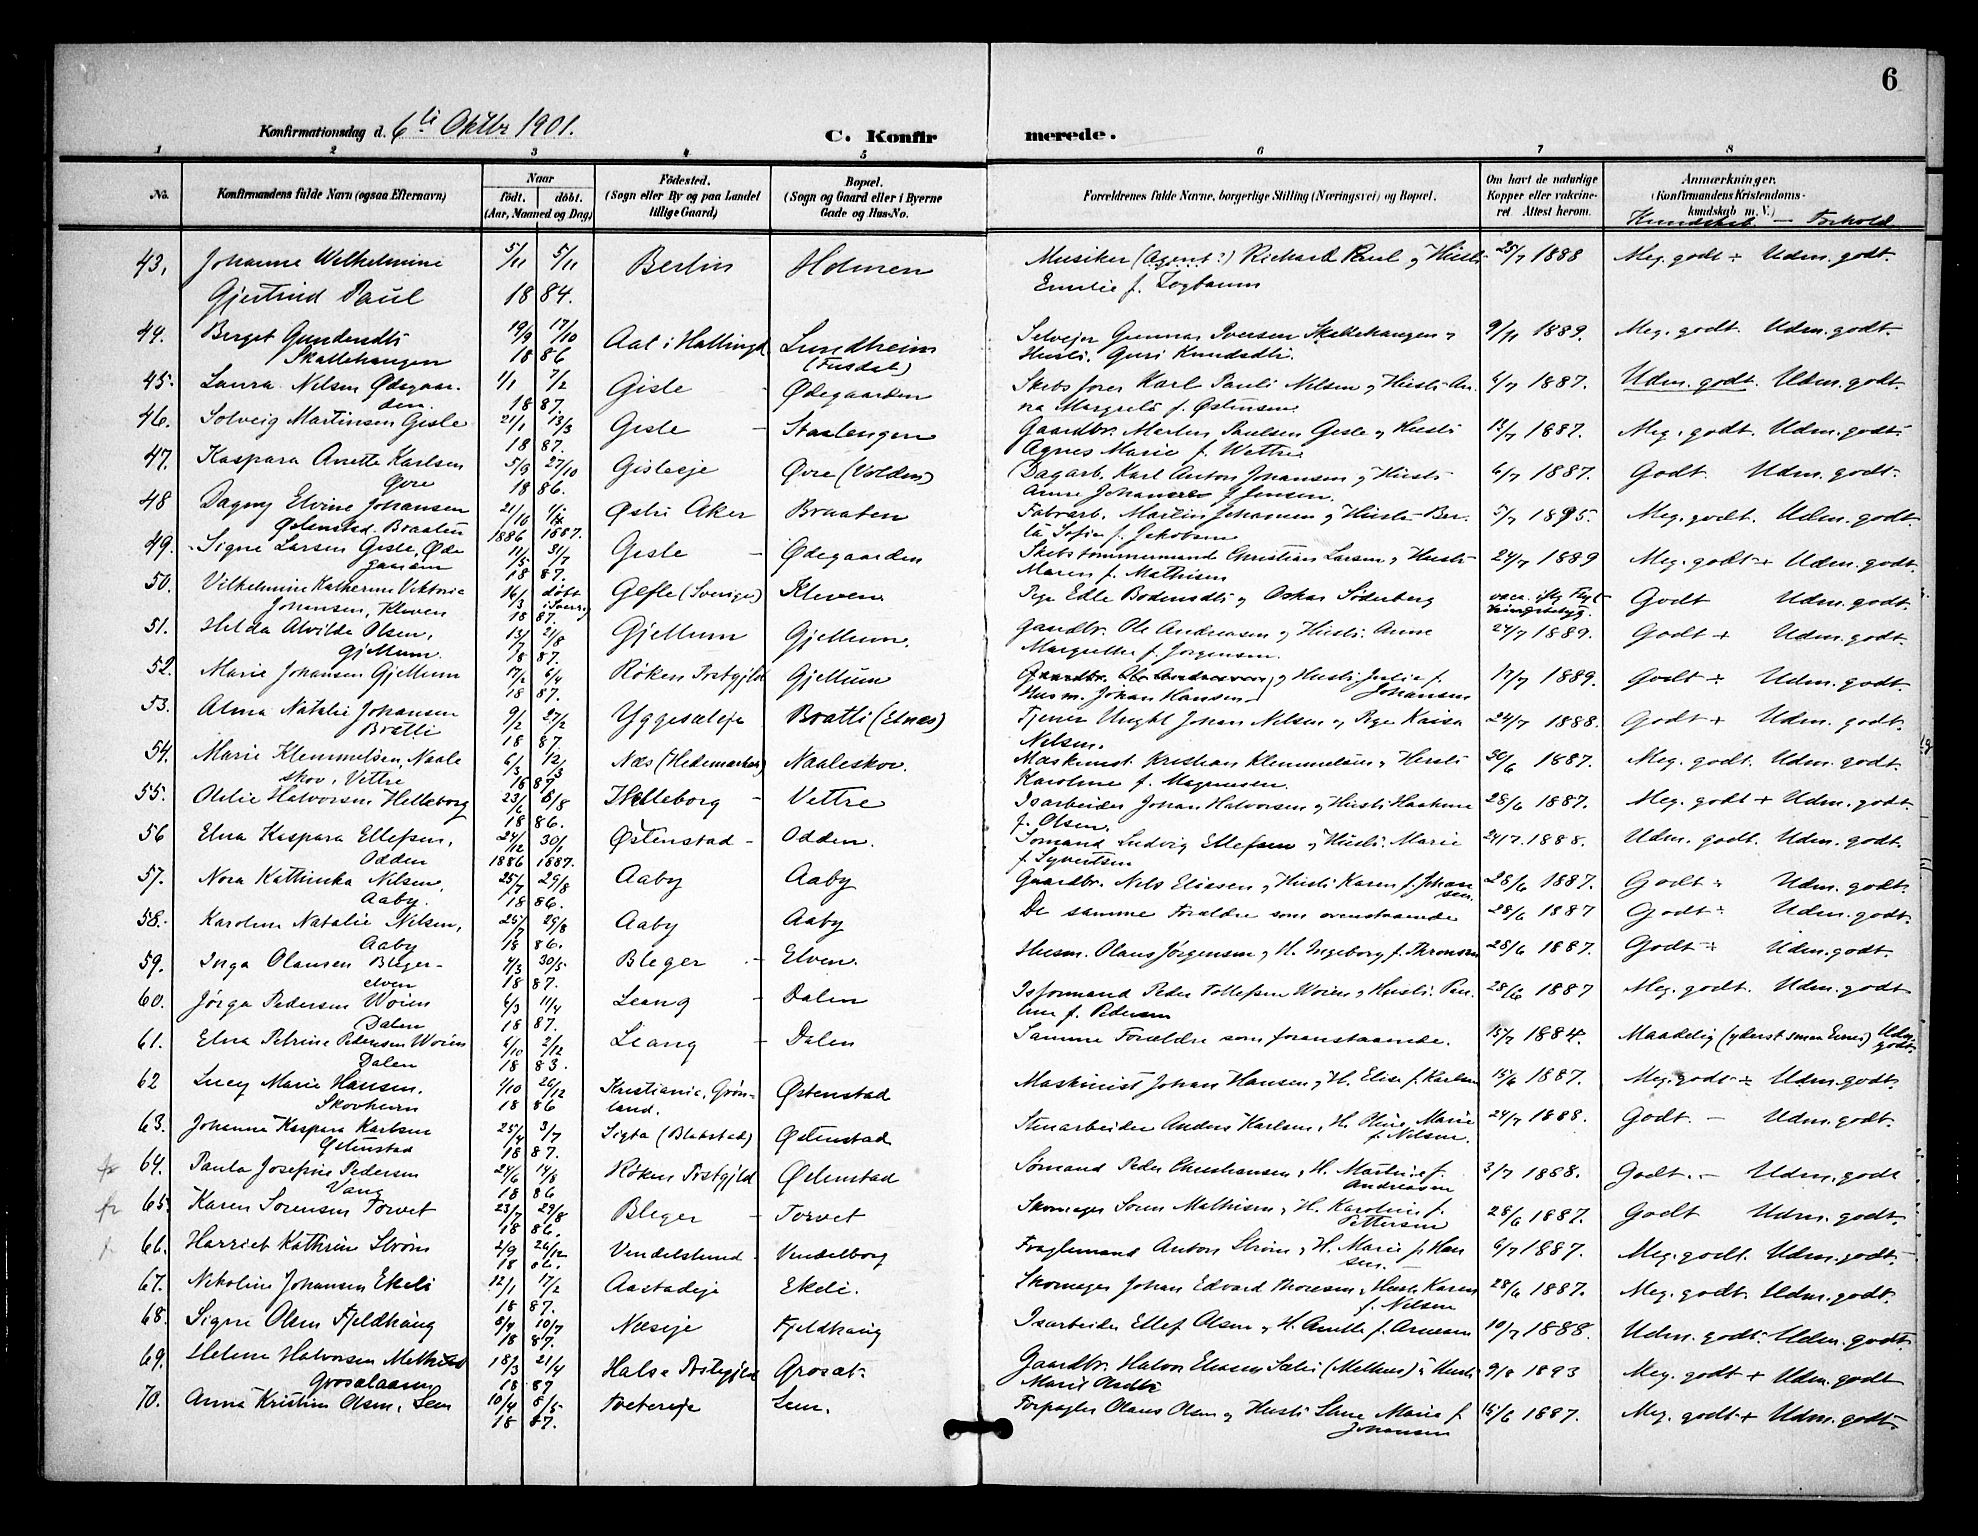 6
Konfirmationsdag d. 6te Oktbr 1901.
C. Konfirmerede.
1 2 3 4 5 6 7 8
No. Konfirmandens fulde Navn (ogsaa Efternavn) Naar født. døbt. (Aar, Maaned og Dag) Fødested. (Sogn eller By og paa Landet tillige Gaard) Bopæl. (Sogn og Gaard eller i Byerne Gade og Hus-No. Forældrenes fulde Navne, borgerlige Stilling (Næringsvei) og Bopæl. Om havt de naturlige Kopper eller vakcineret. Attest herom. Anmærkninger. (Konfirmandens Kristendomskundskab m. V.)
Kundskab — Forhold
43, Johanne Wilhelmine 5/11 5/11 Berlin Holmen Musiker (Agent?) Richard Paul og Hustr 25/7 1888 Meg. godt + Udm. godt.
Gjertrud Paul 18 84. Emilie f.
44. Berget Gundersdtr 19/9 17/10 Aal i Hallingd Lundheim Selvejer Gunnar Iversen Skallehaugen og 9/11 1889. Meg. godt. Udm. godt.
Skallehaugen 18 86 (Fusdal) Hustr. Guri Knudsdtr.
45. Laura Nilsen Ødegaar- 1/1 7/2 Gisle - Ødegaarden Skibsfører Karl Pauli Nilsen og Hustr An- 4/7 1887. Udm. godt. Udm. godt.
den. 18 87. na Margrete f. Østensen.
46. Solveig Martinsen Gisle 21/1 13/3 Gisle - Staalengen Gaardbr. Martin Paulsen Gisle og Hustr 13/7 1887. Meg. godt. Udm. godt.
18 87. Agnes Marie f. Wettre
47. Kaspara Anette Karlsen 5/9 27/10 Gisleeje Øvre (Volden) Dagarb. Karl Anton Johansen og Hustr 6/7 1887. Godt Udm. godt.
Øvre 18 86. Anne Johansen f. Jensen.
48 Dagny Elvine Johansen 21/10 Østre Aker Braaten Fabrarb. Martin Johansen og Hustr Ber- 5/7 1895. Meg. godt. Udm. godt.
Østenstad. Braaten 1886 1887. ta Sofie f. Jakobsen
49. Signe Larsen Gisle, Øde 11/5 31/7 Gisle - Ødegaarden Skibstømmermand Christian Larsen og Hustr 24/7 1889 Meg. godt + Udm. godt.
gaarden 18 87. Maren f. Mathisen
50. Vilhelmine Katherine Viktoria 16/3 døbt i Sverig Gefle (Sverige) Kleven Pige Edle Bodensdtr og Oskar Søderberg Godt Udm. godt.
Johansen, Kleven 18 87.
51. Helda Alvilda Olsen, 13/7 21/8 Gjellum Gjellum. Gaardbr. Ole Andreasen og Hustr. Anne 24/7 1889. Godt + Udm. godt.
Gjellum. 18 87. Margrethe f. Jørgensen.
52. Marie Johansen Gjellum 17/2 6/4 Røken Prstgjld Gjellum og Hustr Julie f. 17/7 1889. Godt + Udm. godt.
18 87. Husm. Johan Hansen Johansen
53. Alma Natalie Johansen 9/2 27/2 Yggesæteje Bratli (Elnes) Tjener Ungkl Johan Nilsen og Pige Kaisa 24/7 1888. Godt + Udm. godt.
Bratli 18 87. Nilsen.
54. Marie Klemmetsen, Naale 6/3 12/3 Næs (Hedemarken) Naaleskov. Maskinist Kristian Klemmetsen og Hustr 30/6 1887. Meg. godt. Udm. godt.
skov, Vettre 1887 Karoline f. Magnussen.
55. Otilie Halvorsen Helleborg 23/6 8/8 Helleborg - Vettre Isarbeider Johan Halvorsen og Hustr Haakine 28/6 1887. Meg. godt + Udm. godt.
18 86. f. Olsen.
56 Elna Kaspara Ellefsen, 24/12 30/1 Østenstad - Odden. Sømand Ludvig Ellefsen og Hustr. Marie 24/7. 1888. Udm. godt. Udm. godt.
Odden 1886 1887. f. Syvertsen
57. Nora Kathinka Nilsen, 25/7 29/8 Aaby Aaby Gaardbr. Nils Eliasen og Hustr Karen f. Johan 28/6 1887. Godt Udm. godt.
Aaby. 18 86. sen.
58. Karoline Natalie Nilsen, 25/7 29/8 Aaby Aaby De samme Forældre som ovenstaaende 28/6 1887 Godt Udm. godt.
Aaby 18 86.
59. Inga Olausen Bleger- 4/3 30/5 Bleger - Elven. Husm. Olaus Jørgensen og H. Ingeborg f. Thronsen 28/6 1887. Godt Udm. godt.
elven 18 87.
60. Jørga Pedersen Woien 6/3 11/4 Leang - Dalen Isformand Peder Tollefsen Woien og Hustr. Pau- 28/6 1887 Meg. godt. Udm. godt
Dalen 18 87. line f. Pedersen
61. Elna Petrine Pedersen Woien 6/10 2/12 Leang - Dalen Samme Forældre som foranstaaende. 15/7 1884. Maadelig (yderst smaa Evner) Udm.
Dalen 18 83. godt.
62 Lucy Marie Hansen, 1/10 26/12 Kristiania, Grøn- Østenstad Maskinist Johan Hansen og H. Elise f. Karlsen 15/6 1887. Meg. godt Udm. godt.
Skovheim 18 86 land.
63. Johanne Kaspara Karlsen 25/4 3/7 Sigta (Blakstad) Østenstad Stenarbeider Anders Karlsen, H. Oline Marie 24/7 1888. Godt. - Udm. godt.
Østenstad 18 87. f. Nilsen.
64. Paula Josefine Pedersen 24/6 14/8 Røken Prstgjld Østenstad Sømand Peder Christiansen, H. Mathie f. 3/7 1888. Godt. - Udm. godt
Vang 18 86 Andreasen
65. Karen Sørensen Torvet 23/7 29/8 Bleger - Torvet Skomager Søren Mathisen, H. Karoline f. 28/6 1887. Godt Udm. godt.
18 86. Pettersen
66. Harriet Kathrine Strøm 2/9 26/12 Vendelslund - Vendelborg Anton Strøm, H. Marie f. Han 6/7 1887. Meg. godt. Udm. godt.
18 86. sen.
67. Nikoline Johansen Ekeli 12/1 17/2 Aastadeje Ekeli. Skomager Johan Edvard Thoresen, Hustr Karen 28/6 1887. Meg. godt. Udm. godt.
18 87. f. Nilsen
68. Signe Olsen Fjeldhaug 8/4 10/7 Næseje Fjeldhaug Isarbeider Ellef Olsen og H. Anette f. Arnesen 10/7 1888. Udm. godt. Udm. godt.
18 87.
69. Helene Halvorsen 18/3 21/4 Halsa Prstgjeld Grosat. Gaardbr. Halvor Eliasen Sæter (Melhus) og Hustr 9/8 1893 Meg. godt + Udm. godt
18 87 Marit
70. Anna Kristine Olsen, Sem 10/4 8/5 Tveterеje Sem. Forpagter Olaus Olsen og Hustr Lina Marie f. 15/6 1887. Meg. godt + Udm. godt.
18 87. Johansen